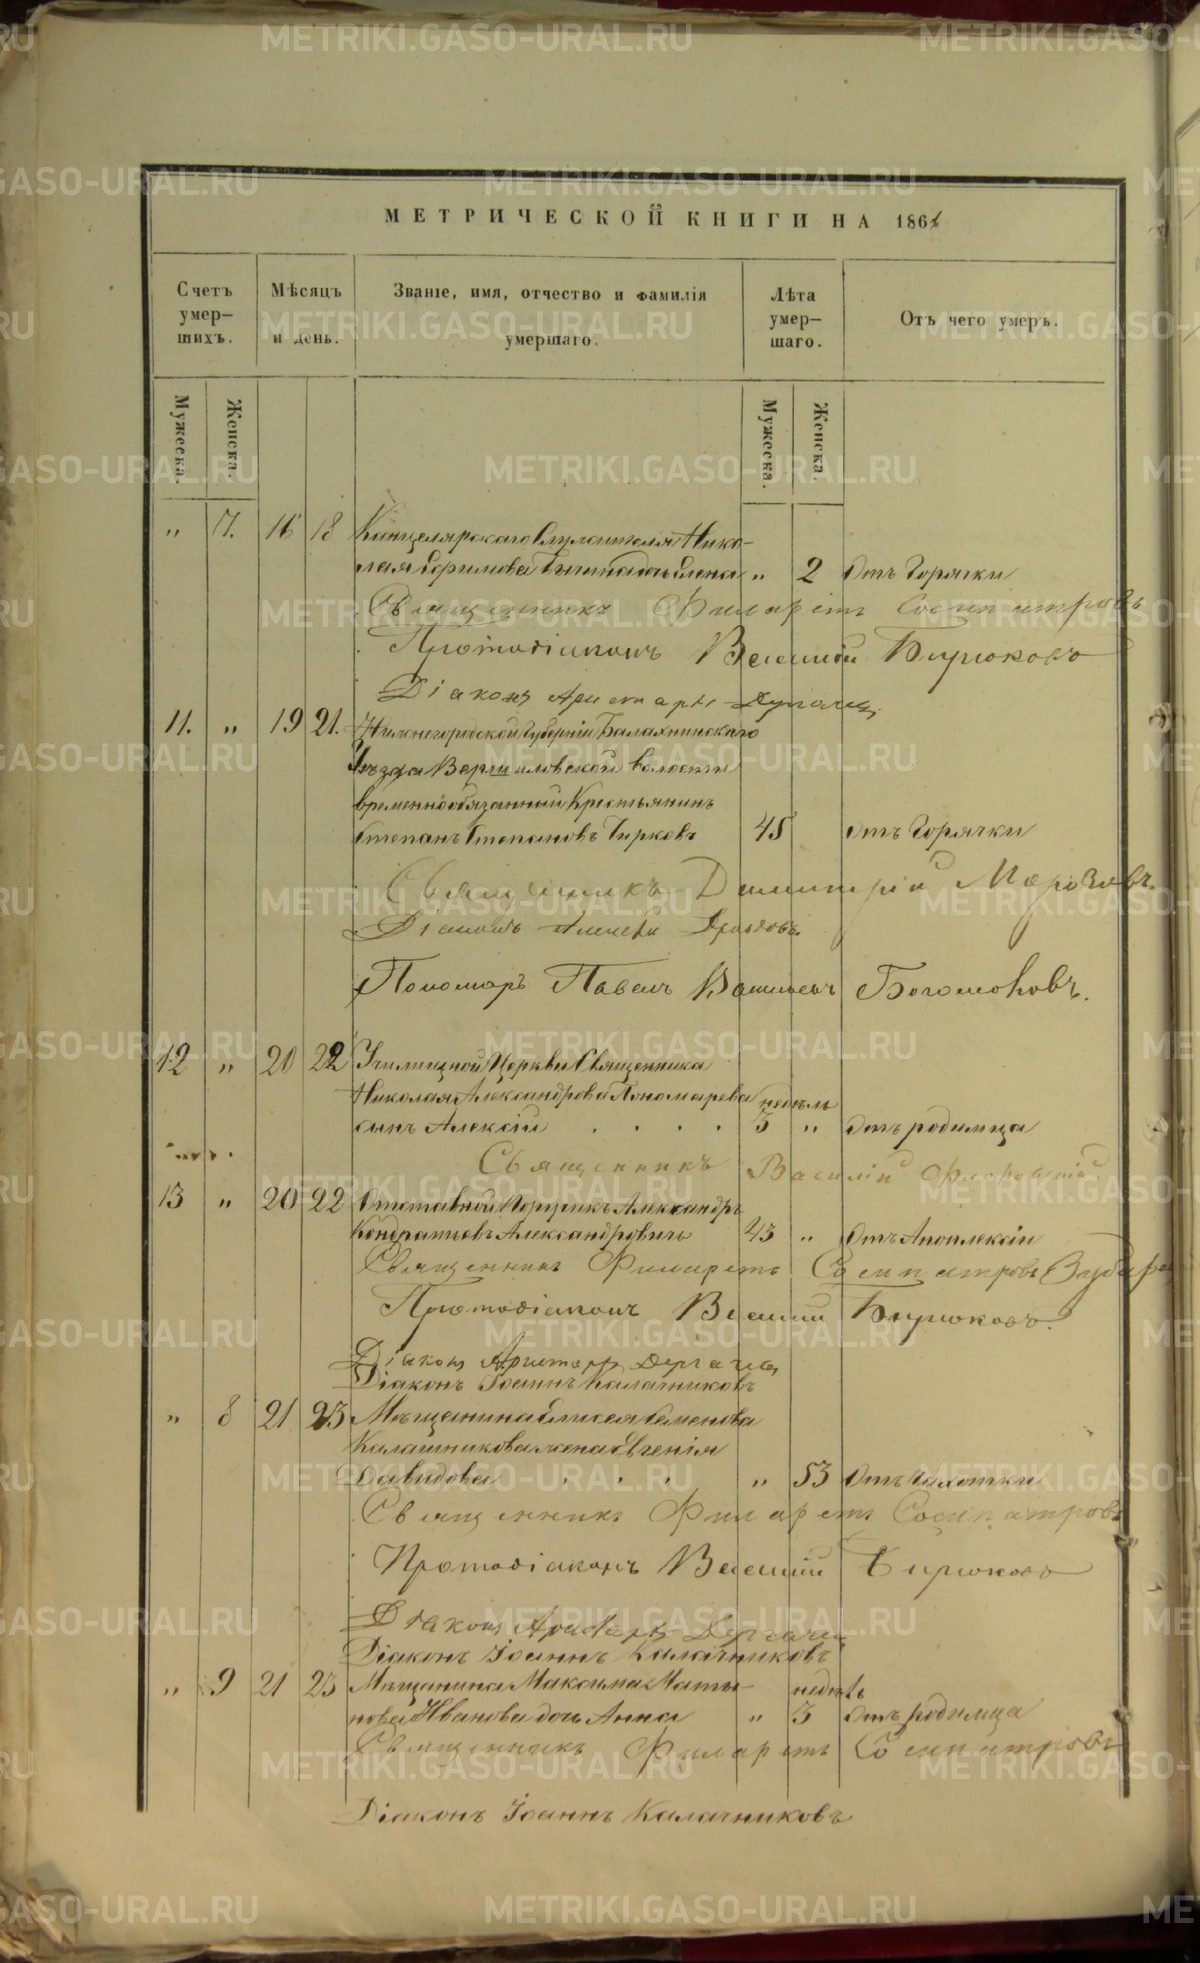 МЕТРИЧЕСКОЙ КНИГИ НА 186
Счетъ умер—шихъ.
Мѣсяцъ и день.
Званіе, имя, отчество и фамилія умершаго.
Лѣта умер—шаго.
Отъ чего умеръ.
Мужеска.
Женска.
Мужеска.
Женска.
„ 7. 16 18 Канцелярскаго Служителя Нико-
лая дочь Елена „ 2 Отъ Горячки
Священникъ Филаретъ Сосипатровъ
Протодіаконъ Василій Бирюковъ
Діаконъ Аристархъ
11. „ 19 21. Нижнегородской Губерніи Балахнинскаго
Уѣзда волости
временнообязанный Крестьянинъ
Степанъ Степановъ 45 Отъ Горячки
Священникъ Димитрій Морозовъ.
Діаконъ Алексѣй
Пономарь Павелъ Богомоловъ.
12 „ 20 22 Училищной Церкви Священника
Николая Александрова Пономарева недѣль
сынъ Алексій . . . . 3 „ Отъ родимца
Священникъ Василій Флоровскій
13 „ 20 22 Отставной Поручикъ Александръ
Кондратьевъ Александровичъ 43 „ Отъ Апоплексіи
Священникъ Филаретъ Сосипатровъ
Протодіаконъ Василій Бирюковъ.
Діаконъ Аристархъ
Діаконъ Іоаннъ Калашниковъ
„ 8 21 23 Мѣщанина Елисея Семенова
Калашникова жена Евгенія
Давидова . . . „ 53 Отъ Чахотки
Священникъ Филаретъ Сосипатровъ
Протодіаконъ Василій Бирюковъ
Діаконъ Аристархъ
Діаконъ Іоаннъ Калашниковъ
„ 9 21 23 Мѣщанина Максима недѣль
Иванова дочь Анна „ 3 Отъ родимца
Священникъ Филаретъ Сосипатровъ
Діаконъ Іоаннъ Калашниковъ
METRIKI.GASO-URAL.RU